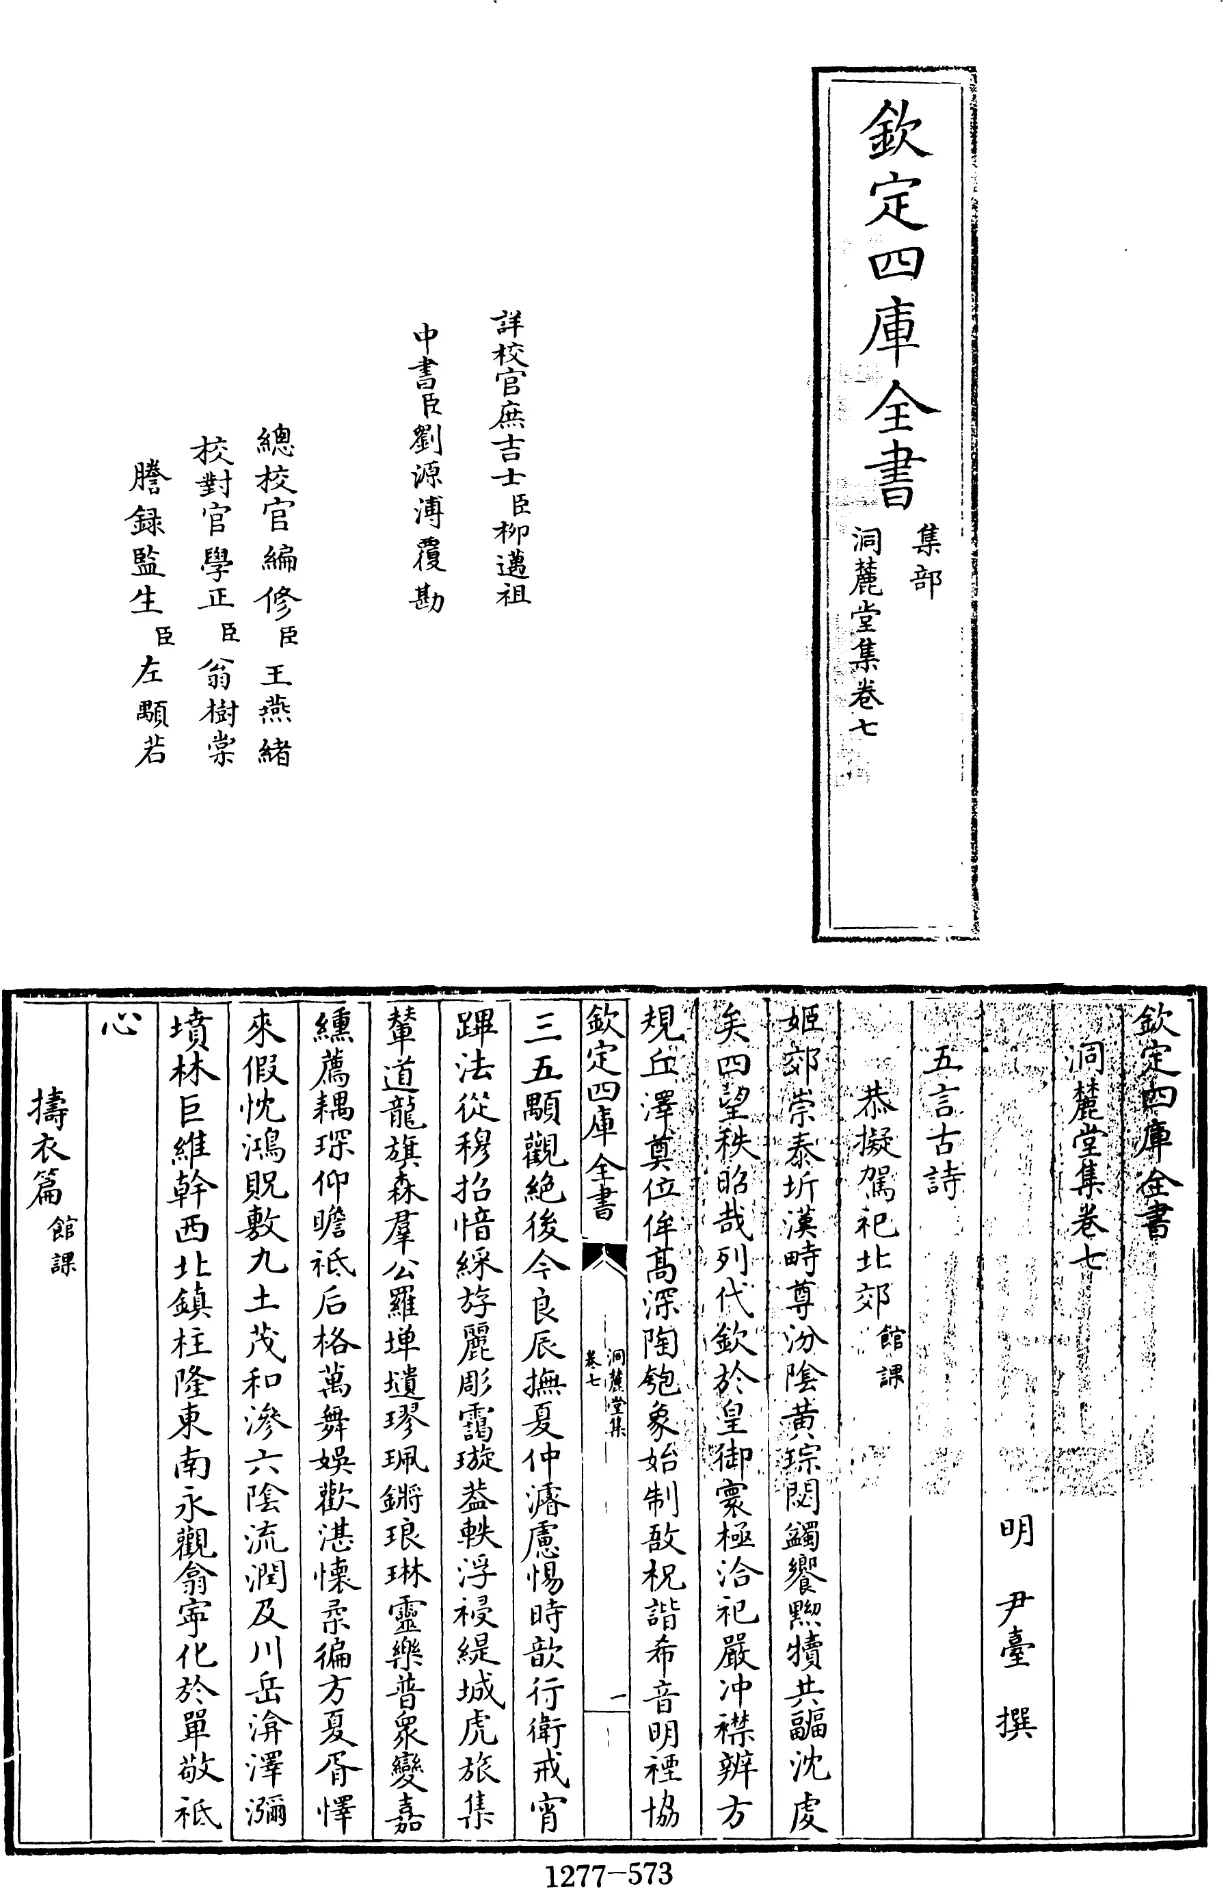 欽定四庫全書
集部
洞麓堂集卷七
詳校官庶吉士臣柳邁祖
中書臣劉源溥覆勘
總校官編修臣王燕緒
校對官學正臣翁樹棠
謄錄監生臣左顒若
欽定四庫全書
洞麓堂集卷七
明 尹臺 撰
五言古詩
恭擬駕祀北郊館課
姬郊崇泰圻漢畤尊汾陰黃琮閟蠲饗黝犢共疈沈虔
矣四望秩昭哉列代欽於皇御寰極洽祀嚴冲襟辨方
規丘澤奠位侔髙深陶匏象始制敔柷諧希音明禋協
欽定四庫全書
洞麓堂集
卷七
一
三五顒觀絶後今良辰撫夏仲濬慮惕時歆行衛戒宵
蹕法從穆招愔綵斿麗彤靄璇葢軼浮祲緹城虎旅集
輦道龍旗森羣公羅墠壝璆珮鏘琅琳靈樂普衆變嘉
纁薦耦琛仰瞻祇后格萬舞娛歡湛懷柔徧方夏胥懌
來假忱鴻貺敷九土茂和滲六陰流潤及川岳洊澤瀰
墳林巨維幹西北鎮柱隆東南永觀翕寜化於單敬祗
心
擣衣篇館課
1277—573